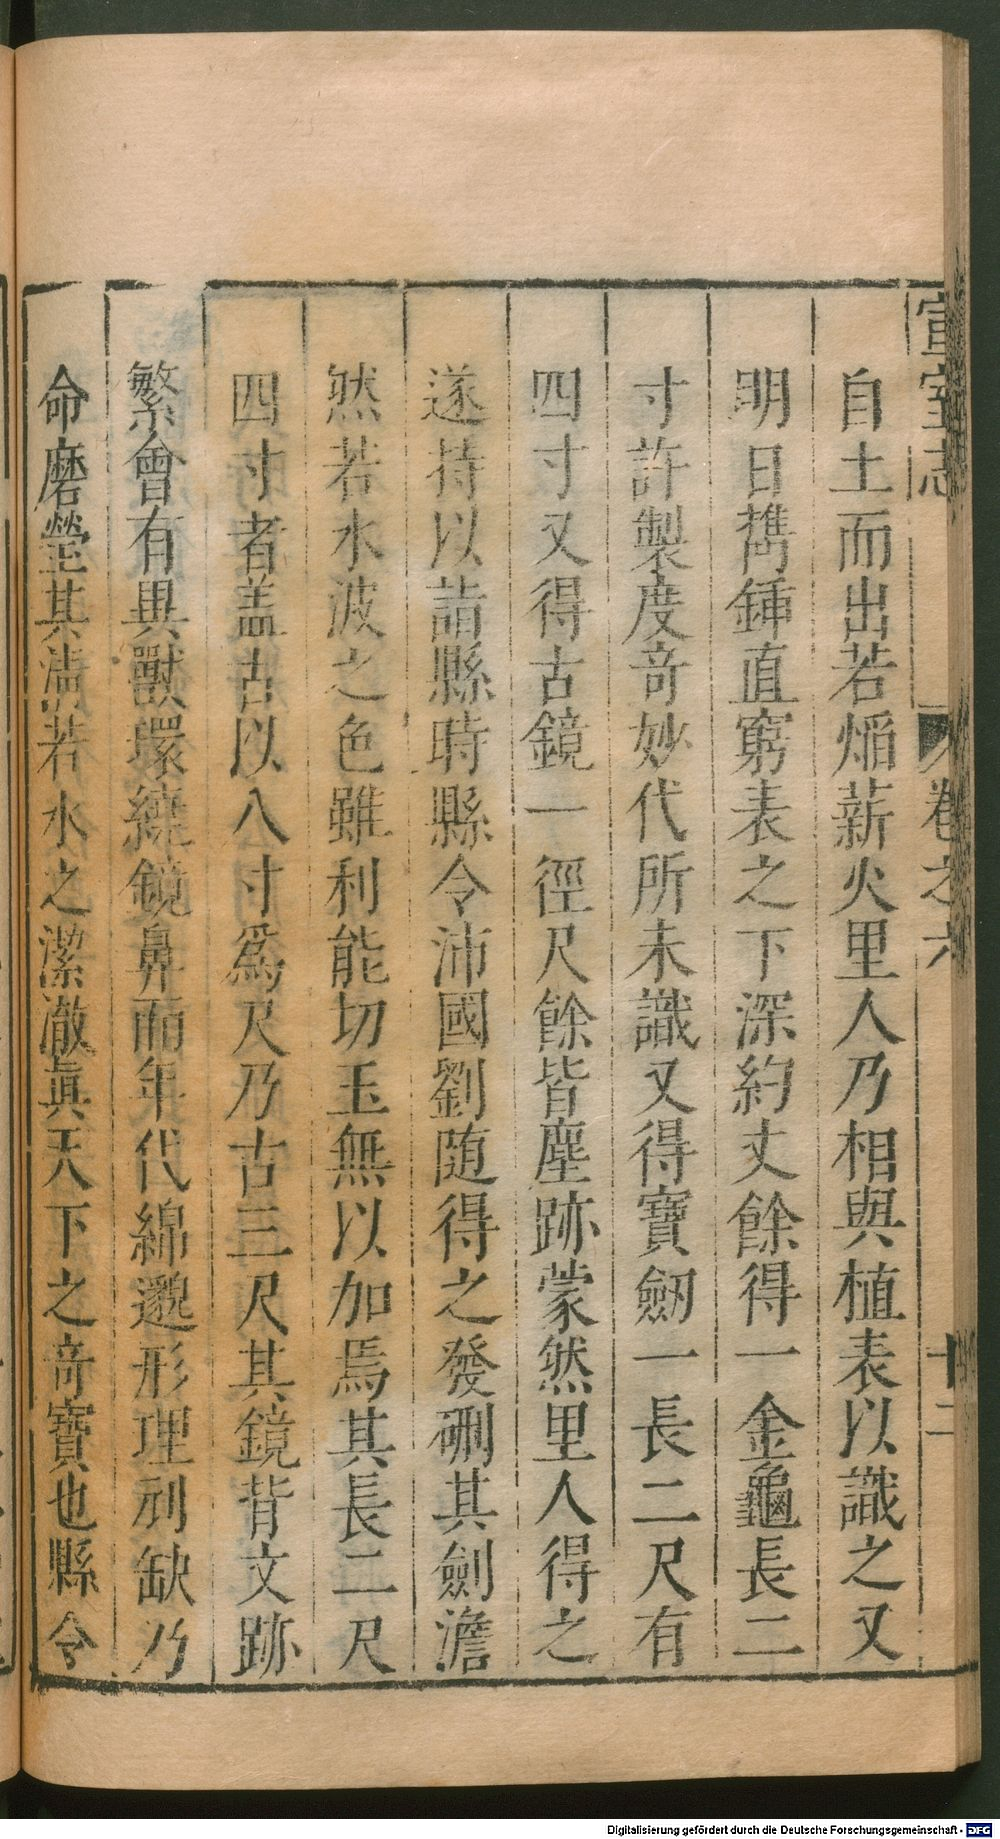 宣室志 卷之六 十二
自土而出若熖薪火里人乃相與植表以識之又
明日携鍤直窮表之下深約丈餘得一金龜長二
寸許製度竒妙代所未識又得寶劒一長二尺有
四寸又得古鏡一徑尺餘皆塵跡蒙然里人得之
遂持以詣縣時縣令沛國劉随得之發硎其劍澹
然若水波之色雖利能切玉無以加焉其長二尺
四寸者盖古以八寸爲尺乃古三尺其鏡背文跡
繁會有異獸環繞鏡鼻而年代綿邈形理刓缺乃
命磨瑩其清若水之潔澈眞天下之竒寶也縣令
Digitalisierung gefördert durch die Deutsche Forschungsgemeinschaft - DFG